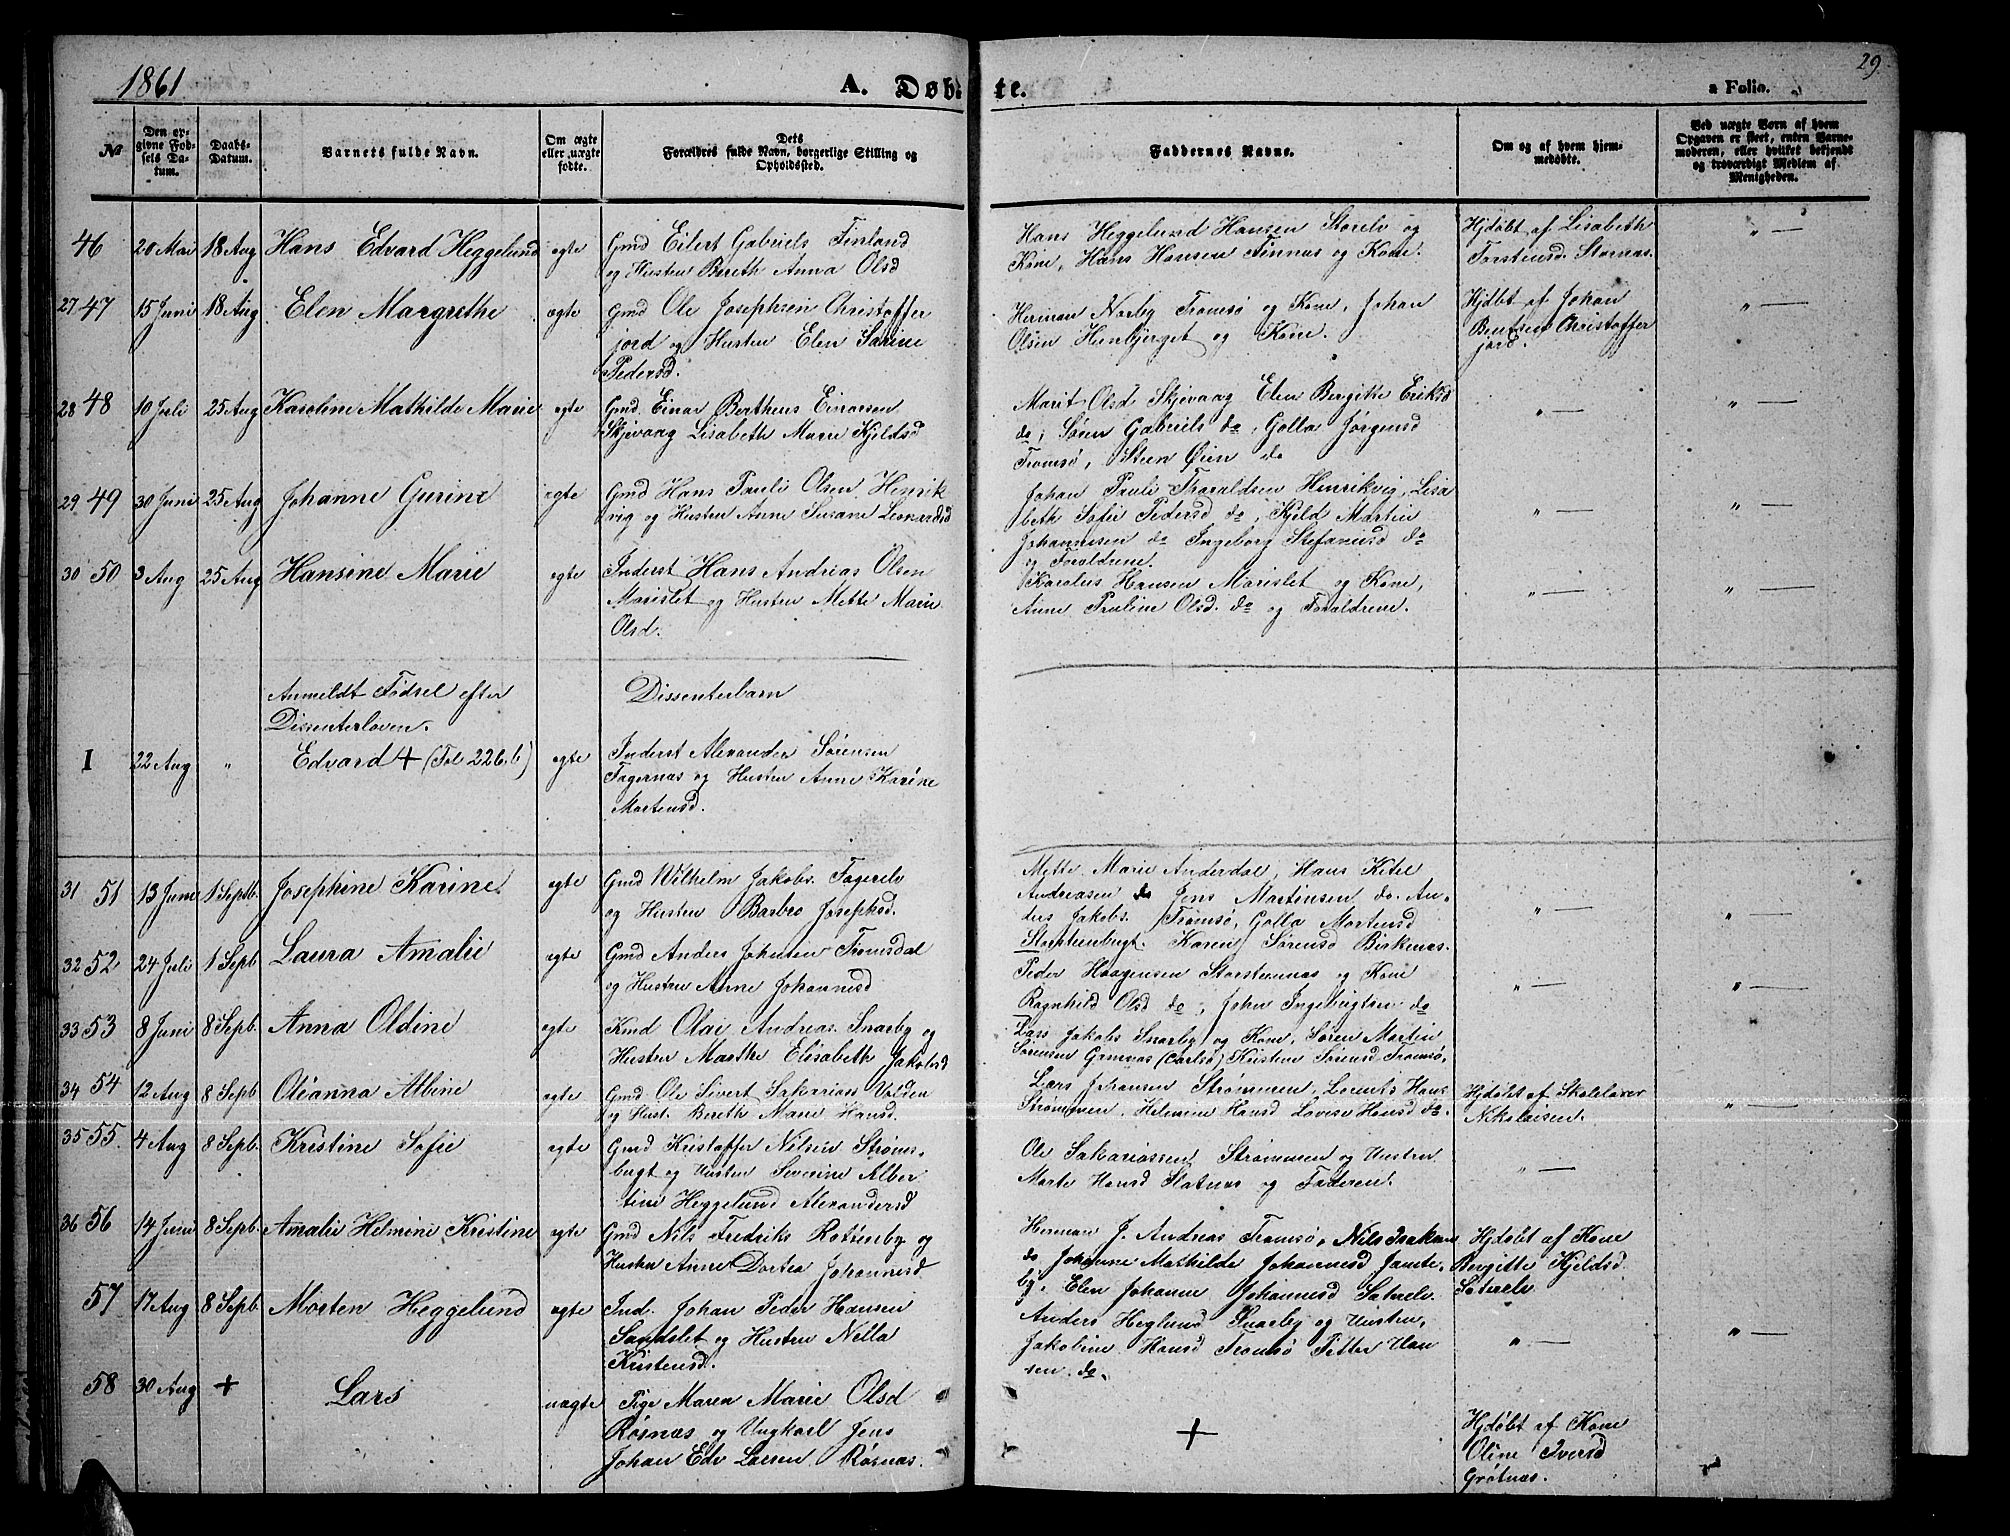 1861
A. Døbte.
29
a Folio.
№
Den opgivne Fødsels Datum.
Daabs-Datum.
Barnets fulde Navn.
Om ægte eller uægte fødte.
Dets Forældres fulde Navn, borgerlige Stilling og Opholdssted.
Faddernes Navne.
Om og af hvem hjemmedøbte.
Ved uægte Børn af hvem Opgaven er skeet, enten Barnemoderen, eller hvilket bekjendt og troværdigt Medlem af Menigheden.
46 20 Mai 18 Aug Hans Edvard Heggelund egte
Gmd Eilert Gabriels Finland
og Hustru Bereth Anna Olsd
Hans Heggelund Hansen Storelv og
Kone, Hans Hansen Finnæs og Kone.
Hjdøbt af Lisabeth
Torstensd. Stornæs.
" —
27 47 15 Juni 18 Aug Elen Margrethe ægte
Gmd Ole Josephsen Christoffer
jord og Hustru Elen Sarine
Pedersd.
Herman Norby Tromsø og Kone, Johan
Olsen Hunbjerget og Kone.
Hjdøbt af Johan
Bentsen Christoffer
jord.
" —
28 48 10 Juli 25 Aug Karoline Mathilde Marie egte
Gmd. Einar Bertheus Einarsen
Skjevaag Lisabeth Marie Kjeldsd
Marit Olsd Skjevaag Elen Bergithe Eriksd
do, Søren Gabriels do, Golla Jørgensd
Tromsø, Steen Øien do
" —
" —
29 49 30 Juni 25 Aug Johanne Gurine egte
Gmd Hans Pauli Olsen Henrik
vig og Hustru Anne Susane Leonardsd
Johan Pauli Thoraldsen Henrikvig, Lisa
beth Sofie Pedersd do, Kjeld Martin
Johannesen do Ingeborg Stefanusd do
og Forældrene.
" —
" —
30 50 3 Aug 25 Aug Hansine Marie egte
Inderst Hans Andreas Olsen
Marislet og Hustru Mette Marie
Olsd.
Karolus Hansen Marislet og Kone,
Anne Pauline Olsd. do og Forældrene.
" —
" —
Anmeldt Fødsel efter
Dissenterloven.
Dissenterbarn
I 22 Aug " Edvard + (Fol 226, b) egte
Inderst Alexander Sørensen
Fagernæs og Hustru Anne Karine
Martensd.
31 51 13 June 1 Septb. Josephine Karine egte
Gmd Wilhelm Jakobs. Fagerelv
og Hustru Barbro Josephsd.
Mette Marie Anderdal, Hans Ketel
Andreasen do Jens Martinsen do. An-
ders Jakobs. Tromsø, Golla Mortensd
Storsteenbugt. Karen Sørensd Birkenæs.
" —
" —
32 52 24 Juli 1 Sepb Laura Amalie egte
Gmd Anders Johnsen Tromsdal
og Hustru Anne Johannesd
Peder Haagensen Storstennæs og Kone
Ragnhild Olsd do, John Ingebrigtsen do
" —
" —
33 53 8 Juni 8 Sepb. Anna Oldine egte
Kmd Olai Andreas. Snarby og
Hustru Marthe Elisabeth Jakobsd
Lars Jakobs Snarby og Kone, Søren Martin
Sørensen Grønnæs (Carlsø) Kristen Sørensd Tromsø,
34 54 12 Aug 8 Sepb Oleanna Albine egte
Gmd Ole Sivert Sakarias Volden
og Hust. Bereth Marie Hansd.
Lars Johansen Strømmen, Lorents Hans
Strømmen, Helmine Hansd Lovise Hansd do.
Hjdøbt af Skolelærer
Nikolaisen.
" —
35 55 4 Aug 8 Sepb. Kristine Sofie egte
Gmd Kristoffer Nilsen Strøms-
bugt og Hustru Severine Alber
tine Heggelund Alexandersd
Ole Sakariassen Strømmen og Hustru
Marte Hansd Slatnæs og Faderen.
" —
36 56 14 Juni 8 Sepb. Amalie Helmine Kristine egte
Gmd Nils Fredriks Rotsenby og
Hustru Anne Dortea Johannesd
Herman J. Andreas Tromsø, Nils Isaksen
do Johanne Mathilde Johannesd Jamte-
by, Elen Johanne Johannesd Sætrelv.
Hjdøbt af Kone
Birgitte Kjeldsd
Sætrelv
57 17 Aug 8 Sepb. Morten Heggelund egte
Ind. Johan Peder Hansen
Sandslet og Hustru Nella
Kristensd.
Anders Heglund Snarby og Hustru,
Jakobine Hansd Tromsø Petter Han
sen do.
" —
" —
58 30 Aug + Lars uægte
Pige Maren Marie Olsd
Røsnæs og Ungkarl Jens
Johan Edv Larsen Røsnæs.
+
Hjdøbt af Kone
Oline Iversd
Grøtnæs.